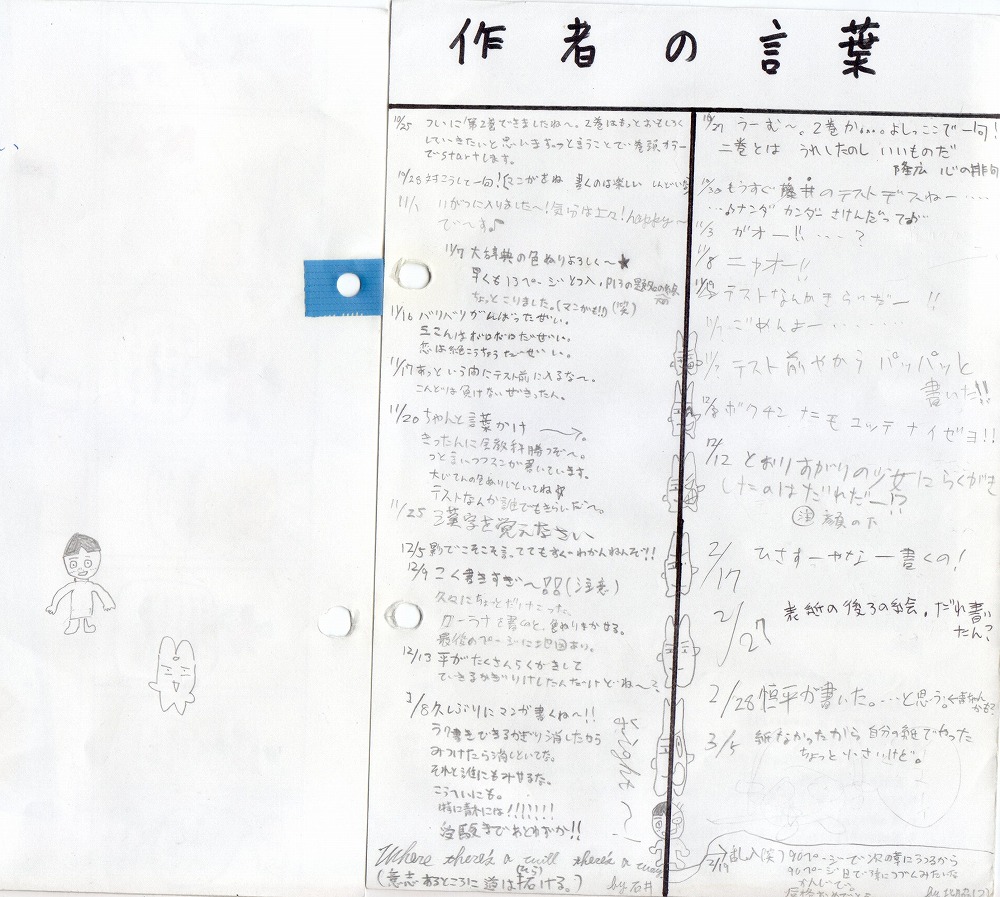 作者の言葉
10/25 ついに「第2巻できましたね〜。2巻はもっとおもしろく
していきたいと思います。っと言うことで巻頭カラー
でstartします。
10/28 対こうして一句!(マンガをね 書くのは楽しい しんどいな)
11/1 11がつに入りました〜!気分は上々!happy〜
で〜す♪
11/7 大辞典の色ぬりよろしく〜★
早くも13ページとつ入。P13の
ちょっとこりました。(マンガも!!)(笑)
11/16 バリバリがんばったぜい。
はボロボロだぜい。
恋は絶こうちょうだぜい。
11/17 あっという間にテスト前に入るな〜。
こんどは負けないぜきったん。
11/20 ちゃんと言葉かけ
きったんに全教科勝つぞ〜。
っと言いつつ が書いています。
大じてんの色ぬりしといてね
テストなんか誰でもきらいだ〜。
11/25 漢字を覚えなさい
12/5 影でこそこそ言ってても わかんねんぞ!!
12/9 こく書きすぎ〜!!(注意)
久々にちょっとだけこった。
を書くのと、色ぬりまかせる。
最後のページに地図あり。
12/13 平がたくさんらくがきして
できるかぎりけしたんだけどね〜?
3/8 久しぶりにマンガ書くね〜!!
ラク書きできるかぎり消したから
みつけたら消しといてな。
それと誰にもみせるな。
こうへいにも。
特に には!!!!!!!
受験まであとわずか!!
fight〜!
Where there's a will there's a way
(意志あるところに道は拓(ひら)ける。) by石井
10/27 うーむ〜。2巻か...。よしっここで一句!
二巻とは うれしたのし いいものだ
隆広 心の俳句
10/30 もうすぐ藤井のテストデスねー.....
...♪ナンダ カンダー さけんだってるが
11/3 ガオー!!....?
11/8 ニャオー!!
テストなんかきらいだー!!
11/ ごめんよー........
11/ テスト前やからパッパッと
書いた!!
12/ ボクチン ナニモ ユッテ ナイゼヨ!!
12/12 とおりすがりの少女にらくがき
したのはだれだー!?
㊟ 顔の下
2/17 ひさすーやなー書くの!
2/27 表紙の後ろの絵、だれ書い
たん?
2/28 恒平が書いた。...と思う。 かも?
3/5 紙なかったから自分の紙でやった
ちょっと小さいけど。
2/19 乱入(笑) 90ページで次の章にうつるから
90ページ目で
かんじで。